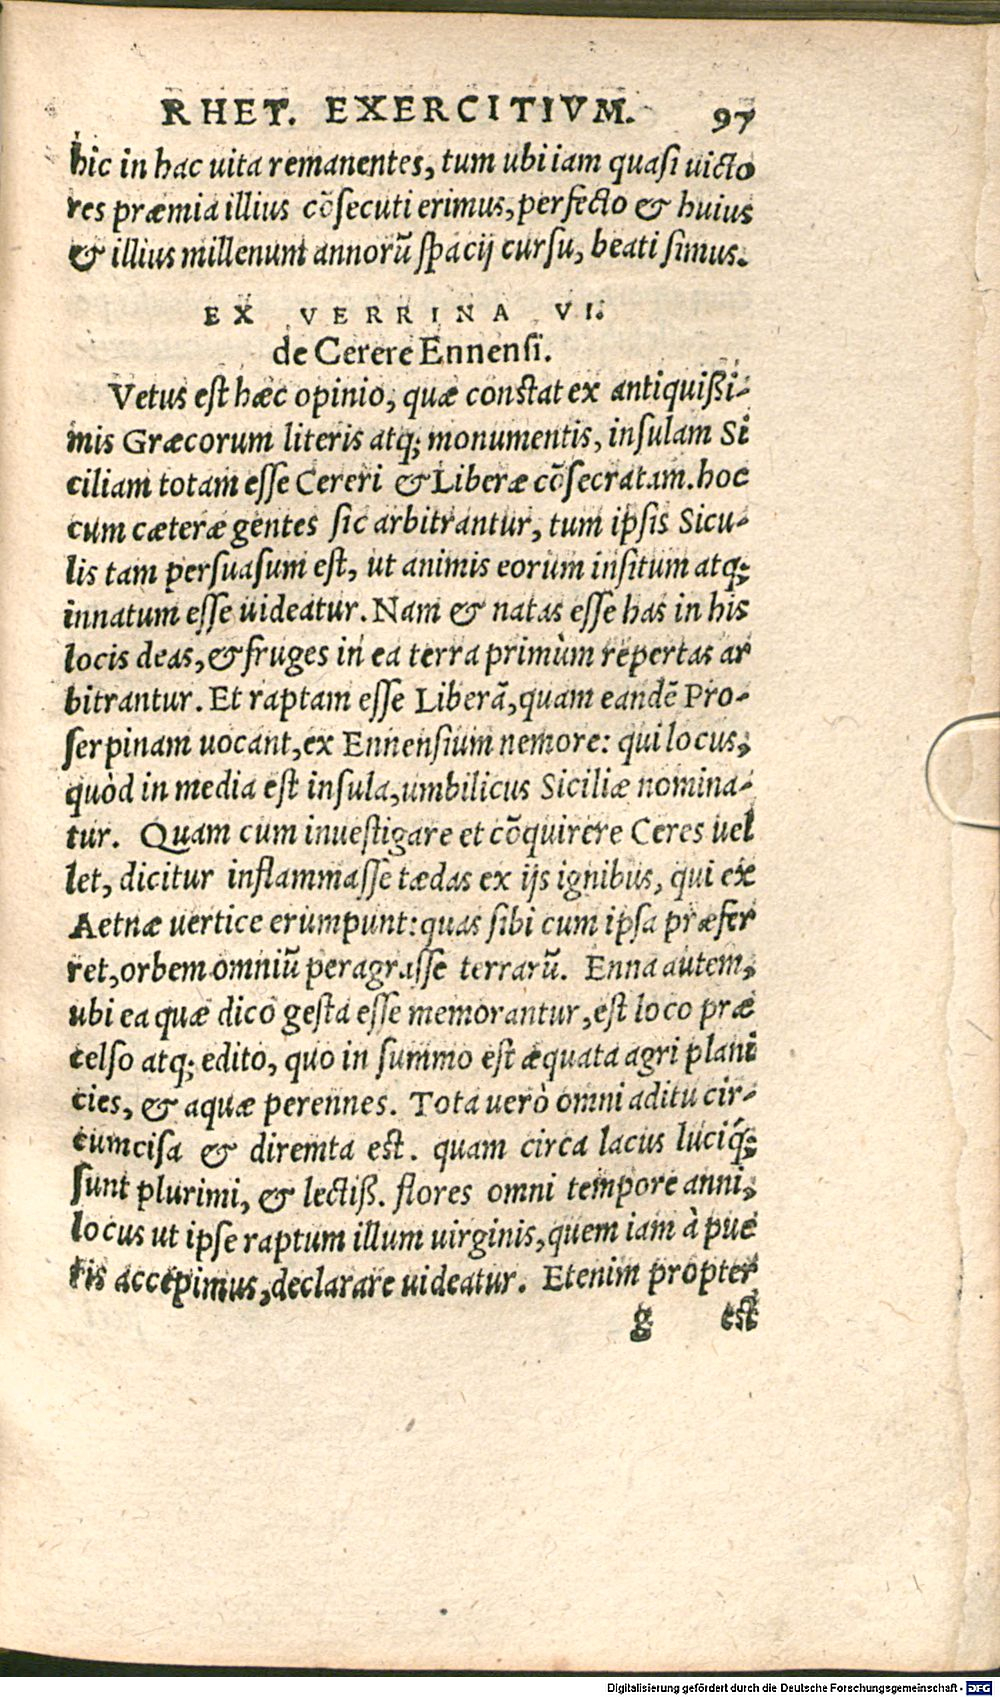 RHET. EXERCITIVM. 97
hic in hac uita remanentes, tum ubi iam quasi uicto
res præmia illius cõsecuti erimus, perfecto & huius
& illius millenum annorũ spacij cursu, beati simus.
EX VERRINA VI.
de Cerere Ennensi.
Vetus est hæc opinio, quæ constat ex antiquißi-
mis Græcorum literis atq; monumentis, insulam Si
ciliam totam esse Cereri & Liberæ cõsecratam. hoc
cum cæteræ gentes sic arbitrantur, tum ipsis Sicu-
lis tam persuasum est, ut animis eorum insitum atq;
innatum esse uideatur. Nam & natas esse has in his
locis deas, & fruges in ea terra primùm repertas ar
bitrantur. Et raptam esse Liberã, quam eandẽ Pro-
serpinam uocant, ex Ennensium nemore: qui locus,
quòd in media est insula, umbilicus Siciliæ nomina-
tur. Quam cum inuestigare et cõquirere Ceres uel
let, dicitur inflammasse tædas ex ijs ignibus, qui ex
Aetnæ uertice erumpunt: quas sibi cum ipsa præfer
ret, orbem omniũ peragrasse terrarũ. Enna autem,
ubi ea quæ dico gesta esse memorantur, est loco præ
celso atq; edito, quo in summo est æquata agri plani
cies, & aquæ perennes. Tota uerò omni aditu cir-
cumcisa & diremta est. quam circa lacus luciq́;
sunt plurimi, & lectiß. flores omni tempore anni,
locus ut ipse raptum illum uirginis, quem iam à pue
ris accepimus, declarare uideatur. Etenim propter
g est
Digitalisierung gefördert durch die Deutsche Forschungsgemeinschaft - DFG